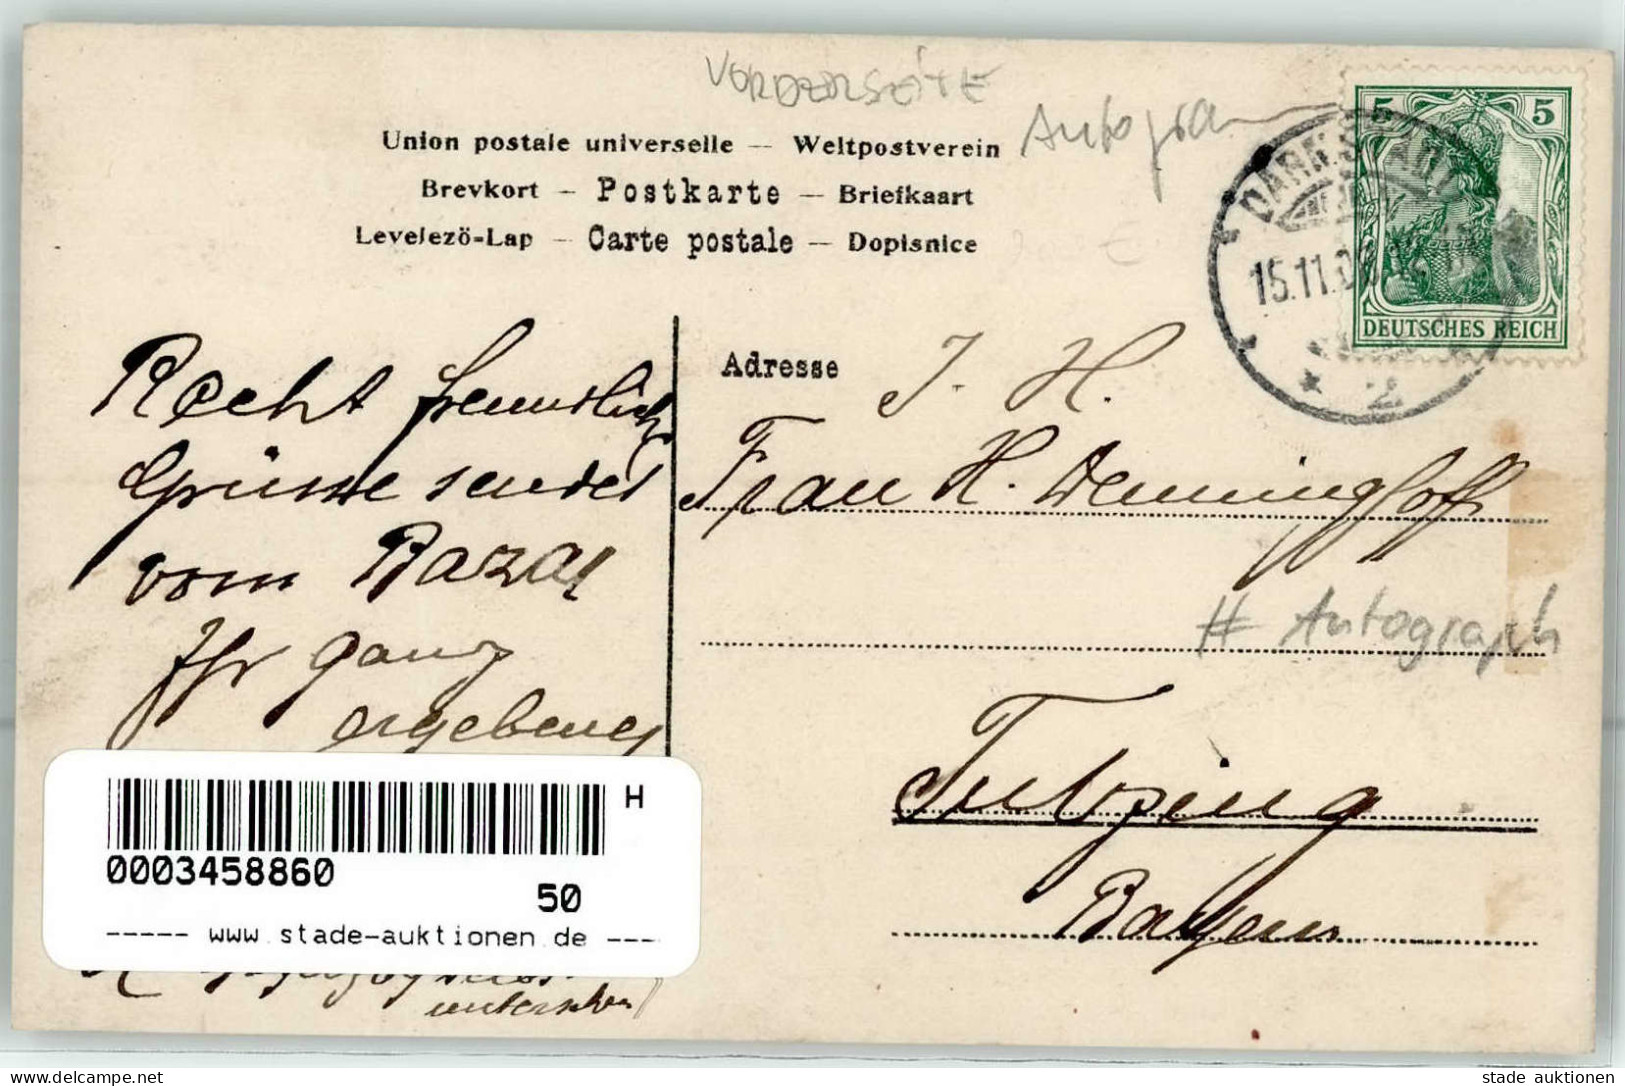 VORDERSEITE
Autogra
Union postale universelle — Weltpostverein
Brevkort — Postkarte — Briefkaart
Levelező-Lap — Carte postale — Dopisnice
5 5
DEUTSCHES REICH
DARMSTADT
15.11.0
* 2
Adresse
J. H.
Frau H. Denninghoff
# Autograph
Tutzing
Bayern
Recht freundliche
Grüsse sendet
vom Bazar
Ihr ganz
ergebener
H
0003458860
50
----- www.stade-auktionen.de ----
delcampe.net
stade auktionen